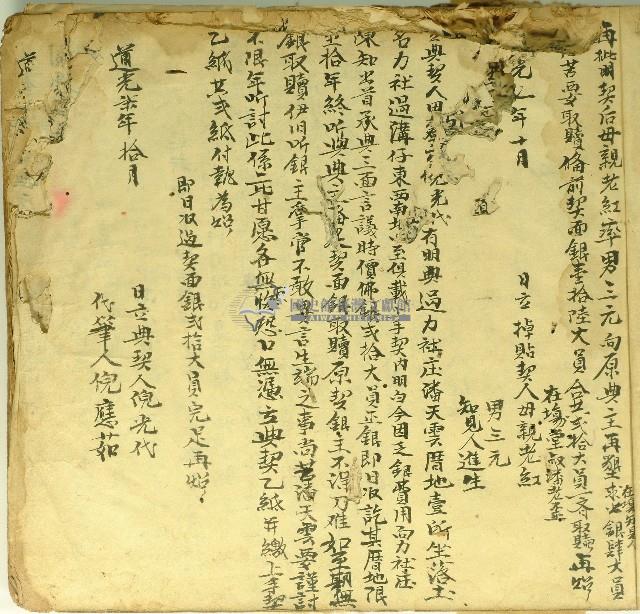 再批明契后母親老紅率男三元向原典主再懇求出銀肆大員
若要取贖備前契面銀壹拾陸大員合共弍拾大員一齊取贖再炤
在場堂叔潘老孟
日立掉貼契人母親老紅
男三元
知見人進生
光 年十月
典契人 倪光代有明典過力社庄潘天雲厝地壹所坐落土
名力社過溝仔東西南北四至俱載上手契內明白今因乏銀費用向力社庄
陳知出首承典三面言議時價佛銀弍拾大員正銀即日收訖其厝地限
至拾年終听典 契面銀取贖原契銀主不得刁难如至期無
銀取贖伊旧听銀主掌管不敢 言生端之事尚若潘天雲要謹討
不限年听討此係二比甘愿各無 口無憑立典契乙紙并繳上手契
乙紙共弍紙付執為炤
即日收過契面銀弍拾大員完足再炤
道光柒年拾月
日立典契人倪光代
代筆人倪應茹
道
國史館臺灣文獻館
TAIWAN HISTORICA